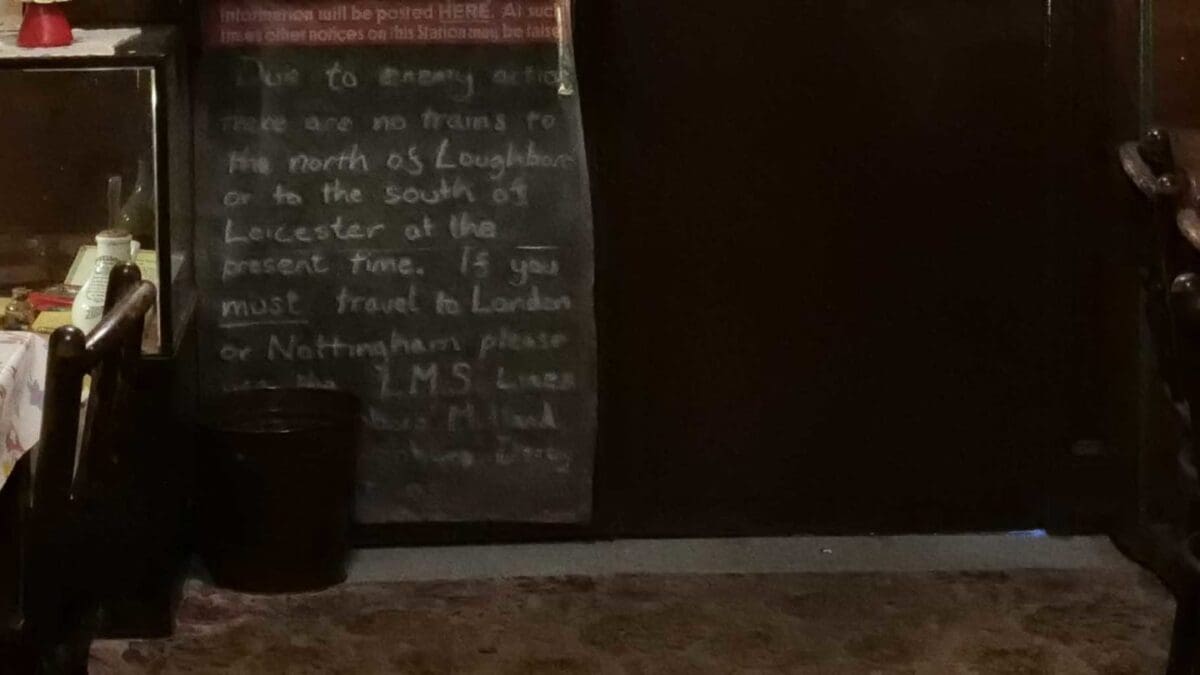 Information will be posted HERE. At such
times other notices on this Station may be false
Due to enemy action
There are no trains to
the north of Loughboro
or to the south of
Leicester at the
present time. If you
must travel to London
or Nottingham please
use the LMS Lines
Midland
Derby